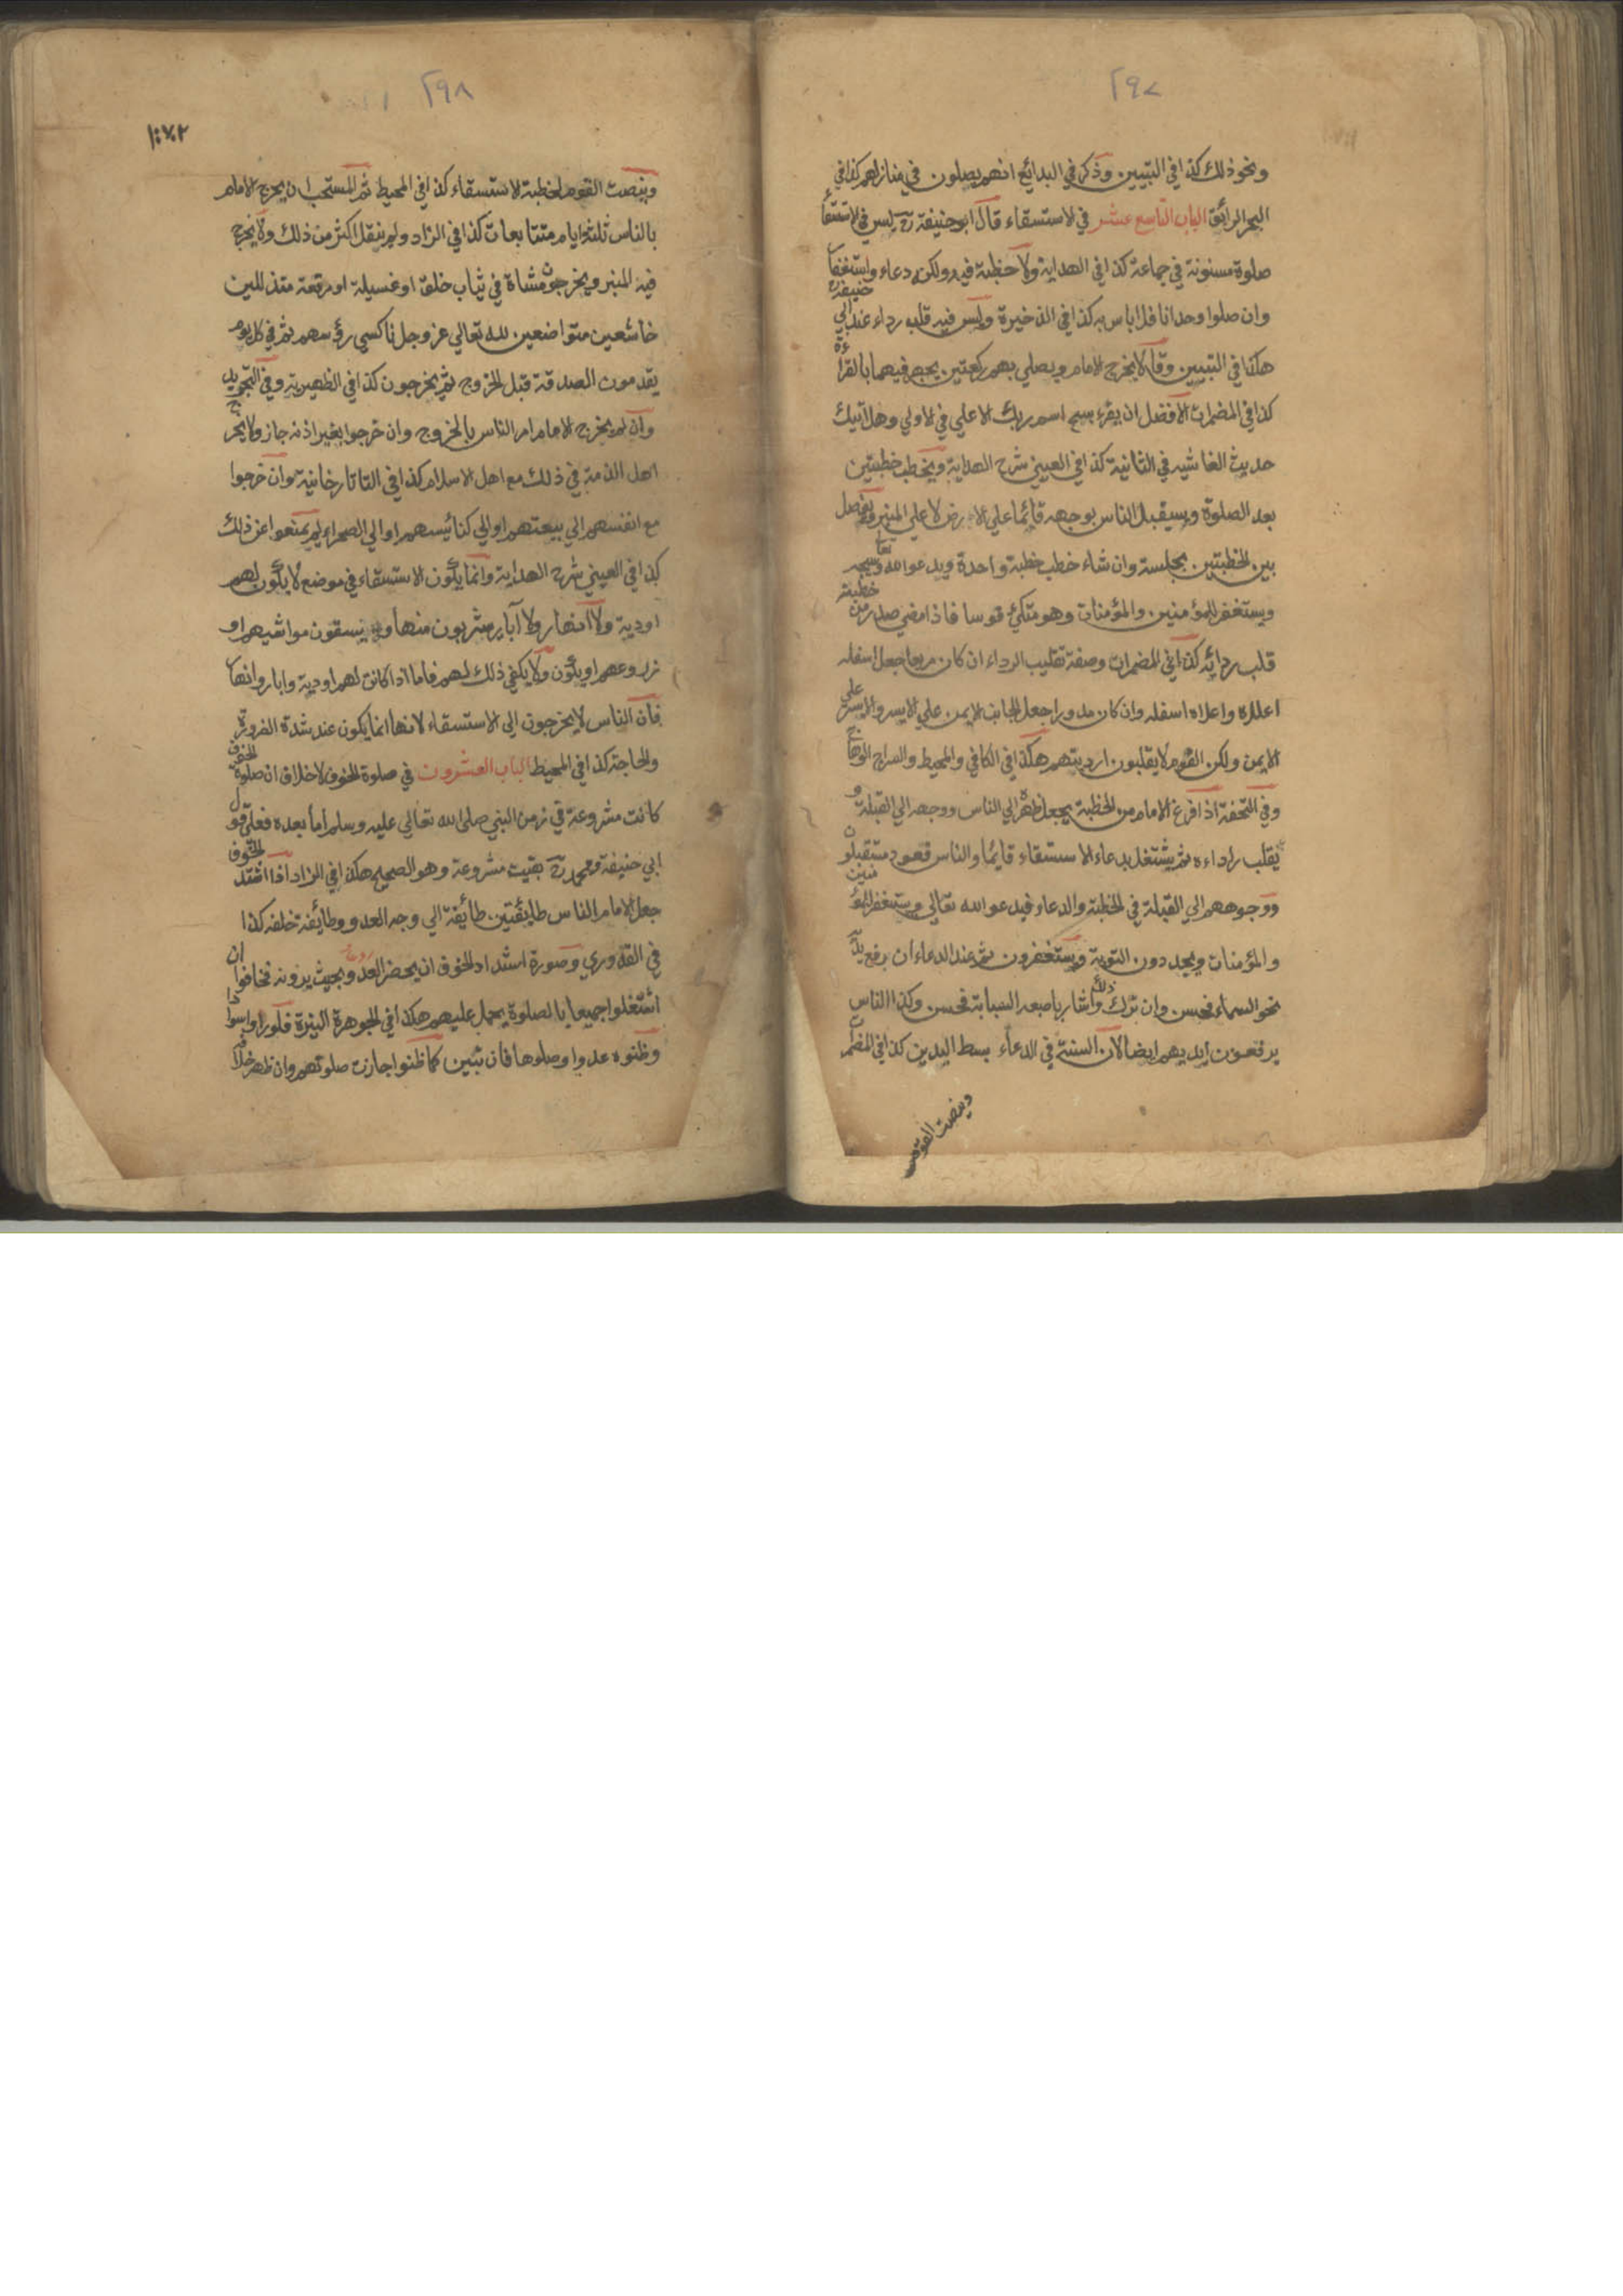 ٢٩٧
ونحو ذلك كذا في التبيين وذكر في البدائع انهم يصلون في منازلهم كذا في
البحر الرائق الباب التاسع عشر في الاستسقاء قال ابو حنيفة رح ليس في الاستسقا
صلوة مسنونة في جماعة كذا في الهداية ولا خطبة فيه ولكن دعاء واستغفار
وان صلوا وحدانا فلا باس به كذا في الذخيرة وليس فيه قلب رداء عند ابي حنيفة رح
هكذا في التبيين وقالا يخرج الامام ويصلي بهم ركعتين يجهر فيهما بالقراءة
كذا في المضمرات الافضل ان يقرء سبح اسم ربك الاعلي في الاولي وهل اتيك
حديث الغاشيه في الثانية كذا في العيني شرح الهداية ويخطب خطبتين
بعد الصلوة ويستقبل الناس بوجهه قائما علي الارض لا علي المنبر ويفصل
بين الخطبتين بجلسة وان شاء خطب خطبة واحدة ويدعوا الله تعا ويسبحه
ويستغفر للمؤمنين والمؤمنات وهو متكئ قوسا فاذا مضي صدر من خطبته
قلب ردائه كذا في المضمرات وصفة تقليب الرداء ان كان مربعا جعل اسفله
اعلاه واعلاه اسفله وان كان مدورا جعل الجانب الايمن علي الايسر والايسر علي
الايمن ولكن القوم لا يقلبون ارديتهم هكذا في الكافي والمحيط والسراج الوهاج
وفي التحفة اذا فرغ الامام من الخطبة يجعل ظهره الي الناس ووجهه الي القبلة و
يقلب راداءه ثم يشتغل بدعاء الاستسقاء قايما والناس قعود مستقبلون
ووجوههم الي القبلة في الخطبة والدعاء فيدعوا الله تعالي ويستغفر للمؤمنين
والمؤمنات ويجددون التوبة ويستغفرون ثم عند الدعاء ان رفع يديه
نحو السماء فحسن وان ترك ذلك واشار باصبعه السبابة فحسن وكذا الناس
يرفعون ايديهم ايضا لان السنة في الدعاء بسط اليدين كذا في المضمرات
وينصت القوم
٢٩٨
وينصت القوم لخطبة الاستسقاء كذا في المحيط ثم المستحب ان يخرج الامام
بالناس ثلثة ايام متتابعات كذا في الزاد ولم ينقل اكثر من ذلك ولا يخرج
فيه المنبر ويخرجون مشاة في ثياب خلق او غسيلة او مرقعة متذللين
خاشعين متواضعين لله تعالي عز وجل ناكسي رؤسهم ثم في كل يوم
يقدمون الصدقة قبل الخروج ثم يخرجون كذا في الظهيرية وفي التجريد
وان لم يخرج الامام امر الناس بالخروج وان خرجوا بغير اذنه جاز ولا يخرج
اهل الذمة في ذلك مع اهل الاسلام كذا في التاتارخانية وان خرجوا
مع انفسهم الي بيعتهم او الي كنائسهم او الي الصحراء لم يمنعوا عن ذلك
كذا في العيني شرح الهداية وانما يكون الاستسقاء في موضع لا يكون لهم
اودية ولا انهار ولا آبار يشربون منها و يسقون مواشيهم او
زروعهم او يكون ولا يكفي ذلك لهم فاما اذا كانت لهم اودية وابار وانهار
فان الناس لا يخرجون الي الاستسقاء لانها انما يكون عند شدة الضرورة
والحاجة كذا في المحيط الباب العشرون في صلوة الخوف لا خلاف ان صلوة الخوف
كانت مشروعة في زمن النبي صلي الله تعالي عليه وسلم اما بعده فعلي قول
ابي حنيفة ومحمد رح بقيت مشروعة وهو الصحيح هكذا في الزاد اذا اشتد الخوف
جعل الامام الناس طايفتين طائفة الي وجه العدو وطائفة خلفه كذا
في القدوري وصورة اشتداد الخوف ان يحضر العدو بحيث يرونه فخافوا ان
اشتغلوا جميعا بالصلوة يحمل عليهم هكذا في الجوهرة النيرة فلو راوا سوادا
وظنوه عدوا وصلوها فان تبين كما ظنوا جازت صلوتهم وان ظهر خلافه